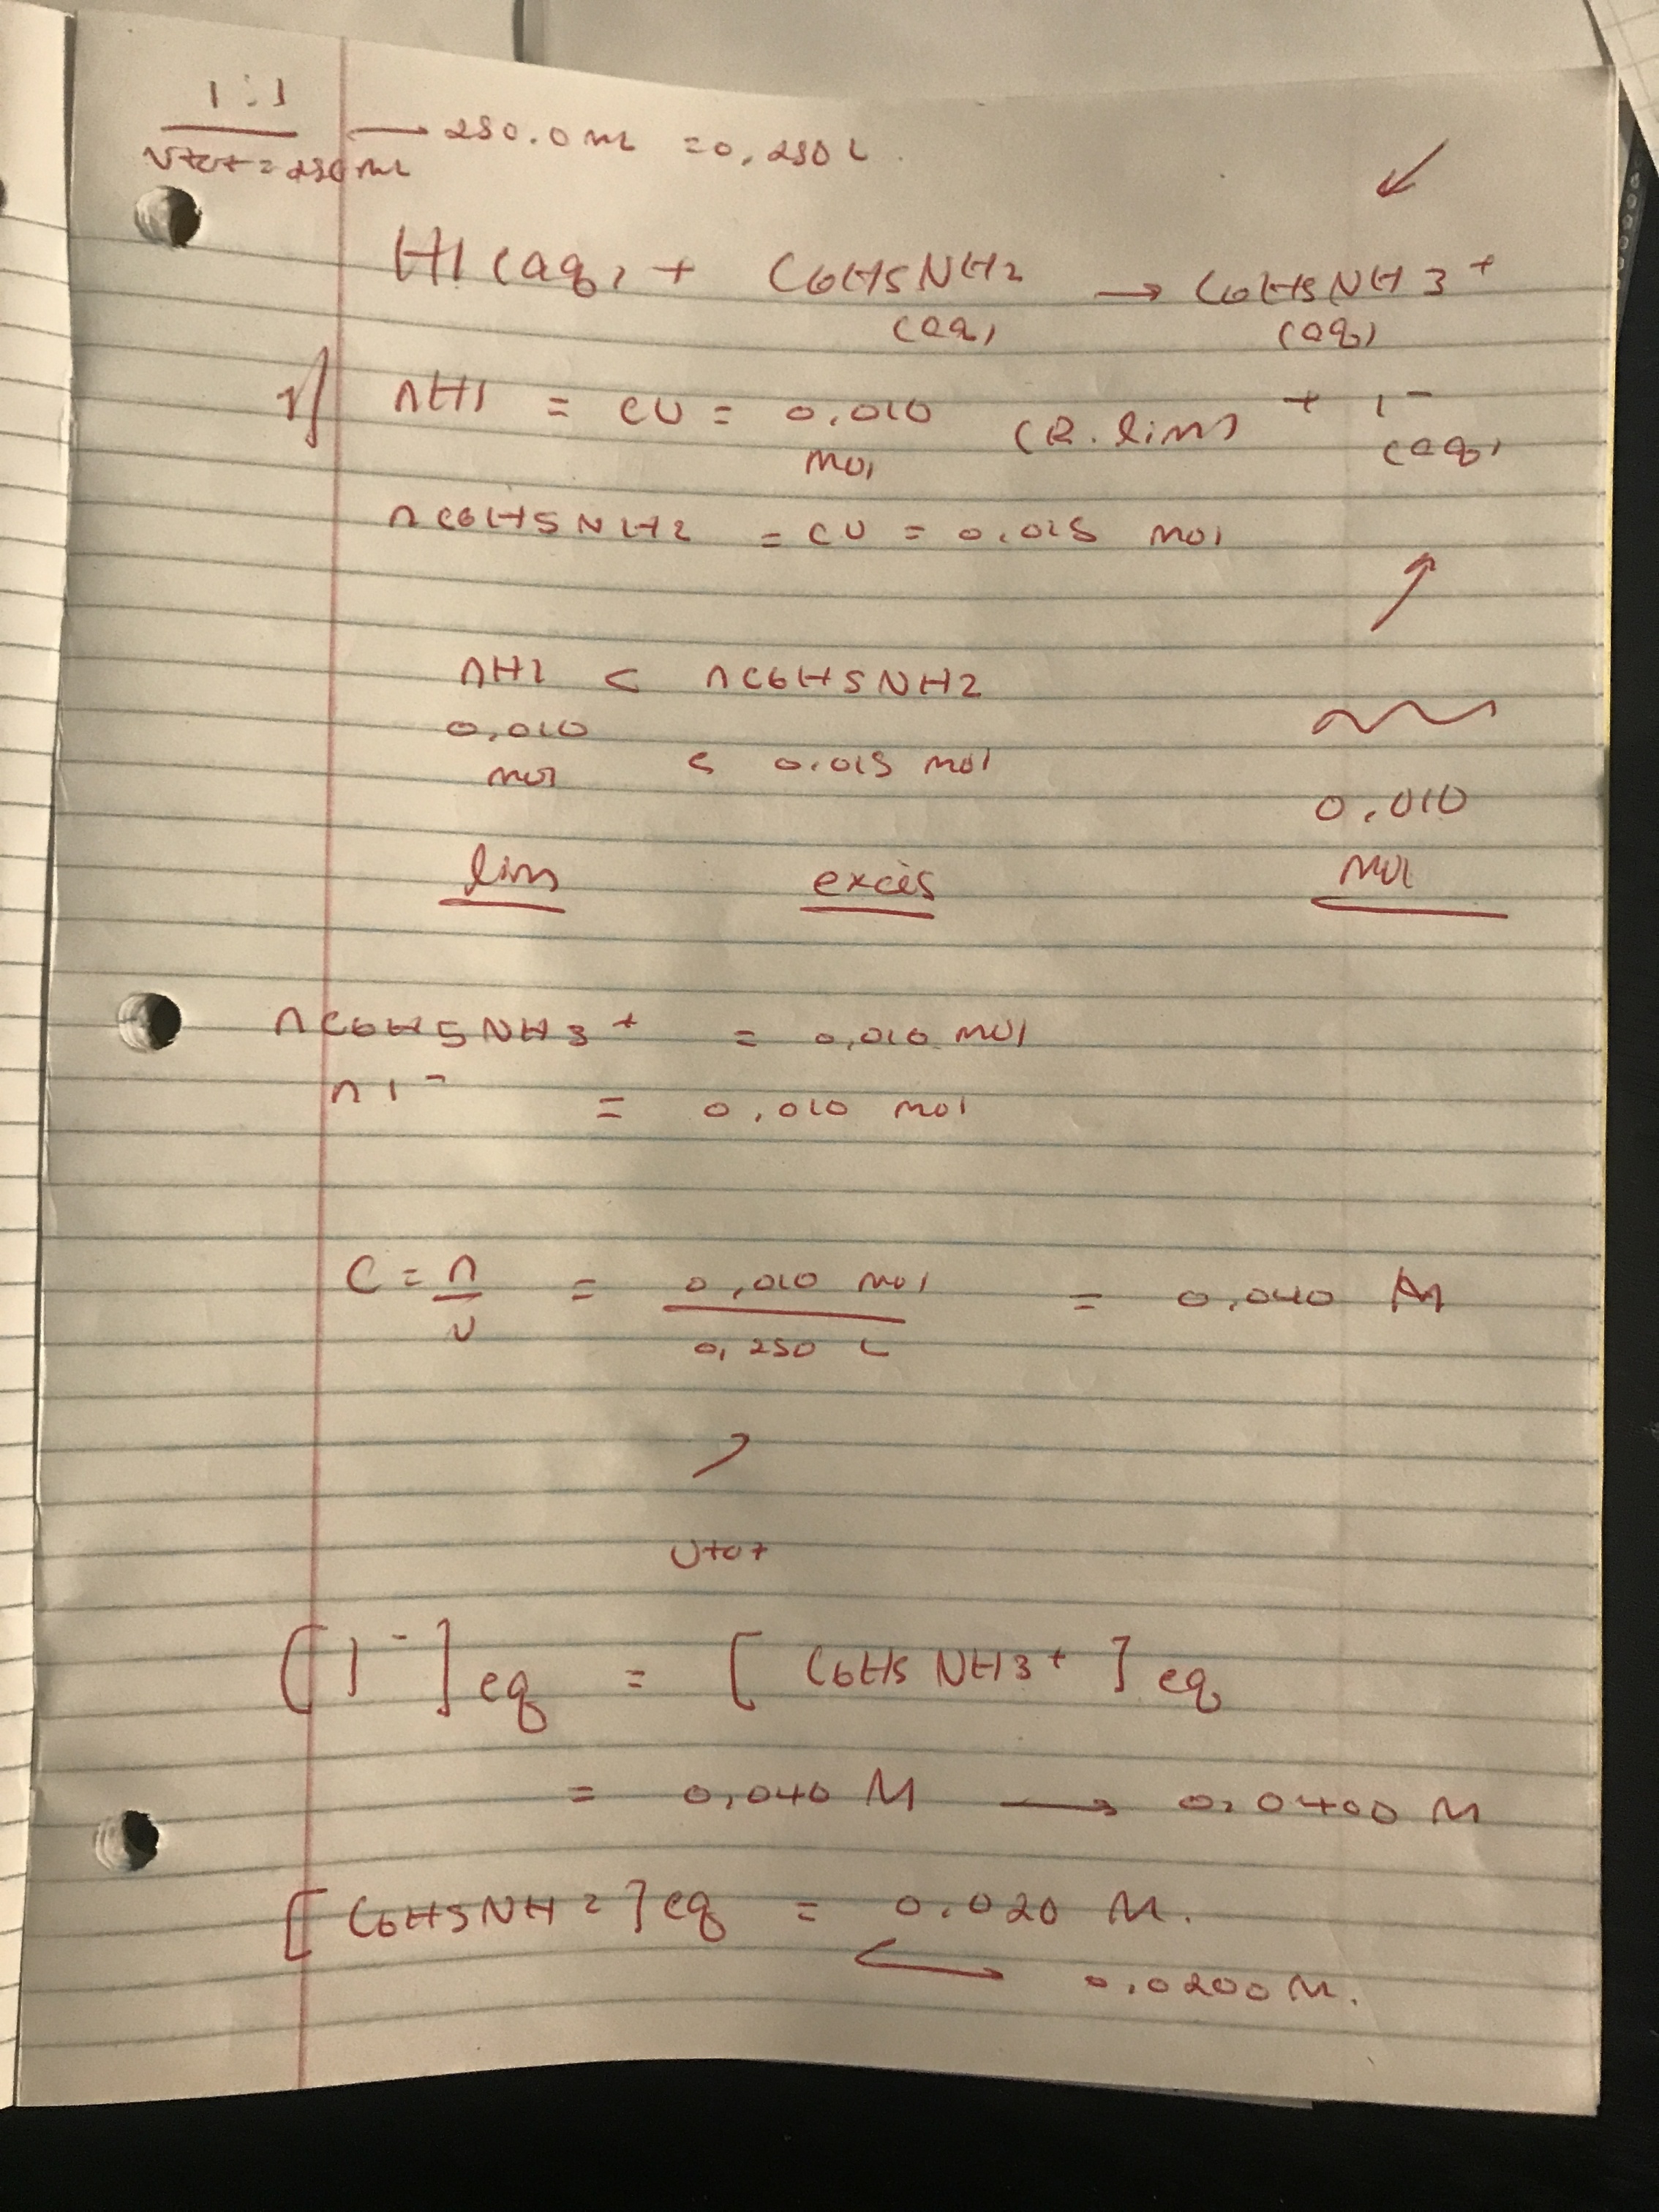 1 : 1
Vtot = 250 mL → 250.0 mL = 0,250 L.
HI (aq) + C6H5NH2 (aq) → C6H5NH3+ (aq) + I- (aq)
1) nHI = CV = 0.010 mol (R. lim)
nC6H5NH2 = CV = 0.015 mol
nHI < nC6H5NH2
0,010 mol < 0.015 mol
0,010 mol
lim excès
nC6H5NH3+ = 0,010 mol
nI- = 0,010 mol
C = n/V = 0,010 mol / 0,250 L = 0,040 M
Vtot
[I-]eq = [C6H5NH3+]eq
= 0,040 M → 0,0400 M
[C6H5NH2]eq = 0.020 M.
0,0200 M.